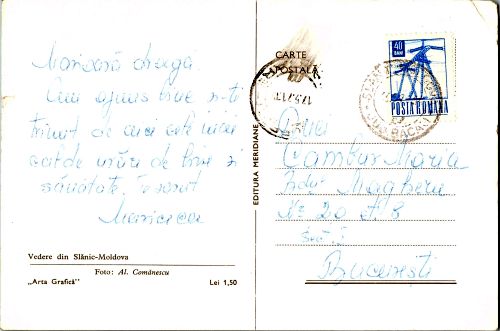 Marioară dragă
Am ajuns bine și-ți
trimit de aici cele mai
calde urări de bine și
sănătate, te sărut
Maricica
Vedere din Slănic-Moldova
Foto: Al. Comănescu
„Arta Grafică” Lei 1,50
EDITURA MERIDIANE
CARTE
POȘTALĂ
40
BANI
POSTA ROMANA
BACĂU
Cambur Maria
Magheru
Nr 20 et 8
București